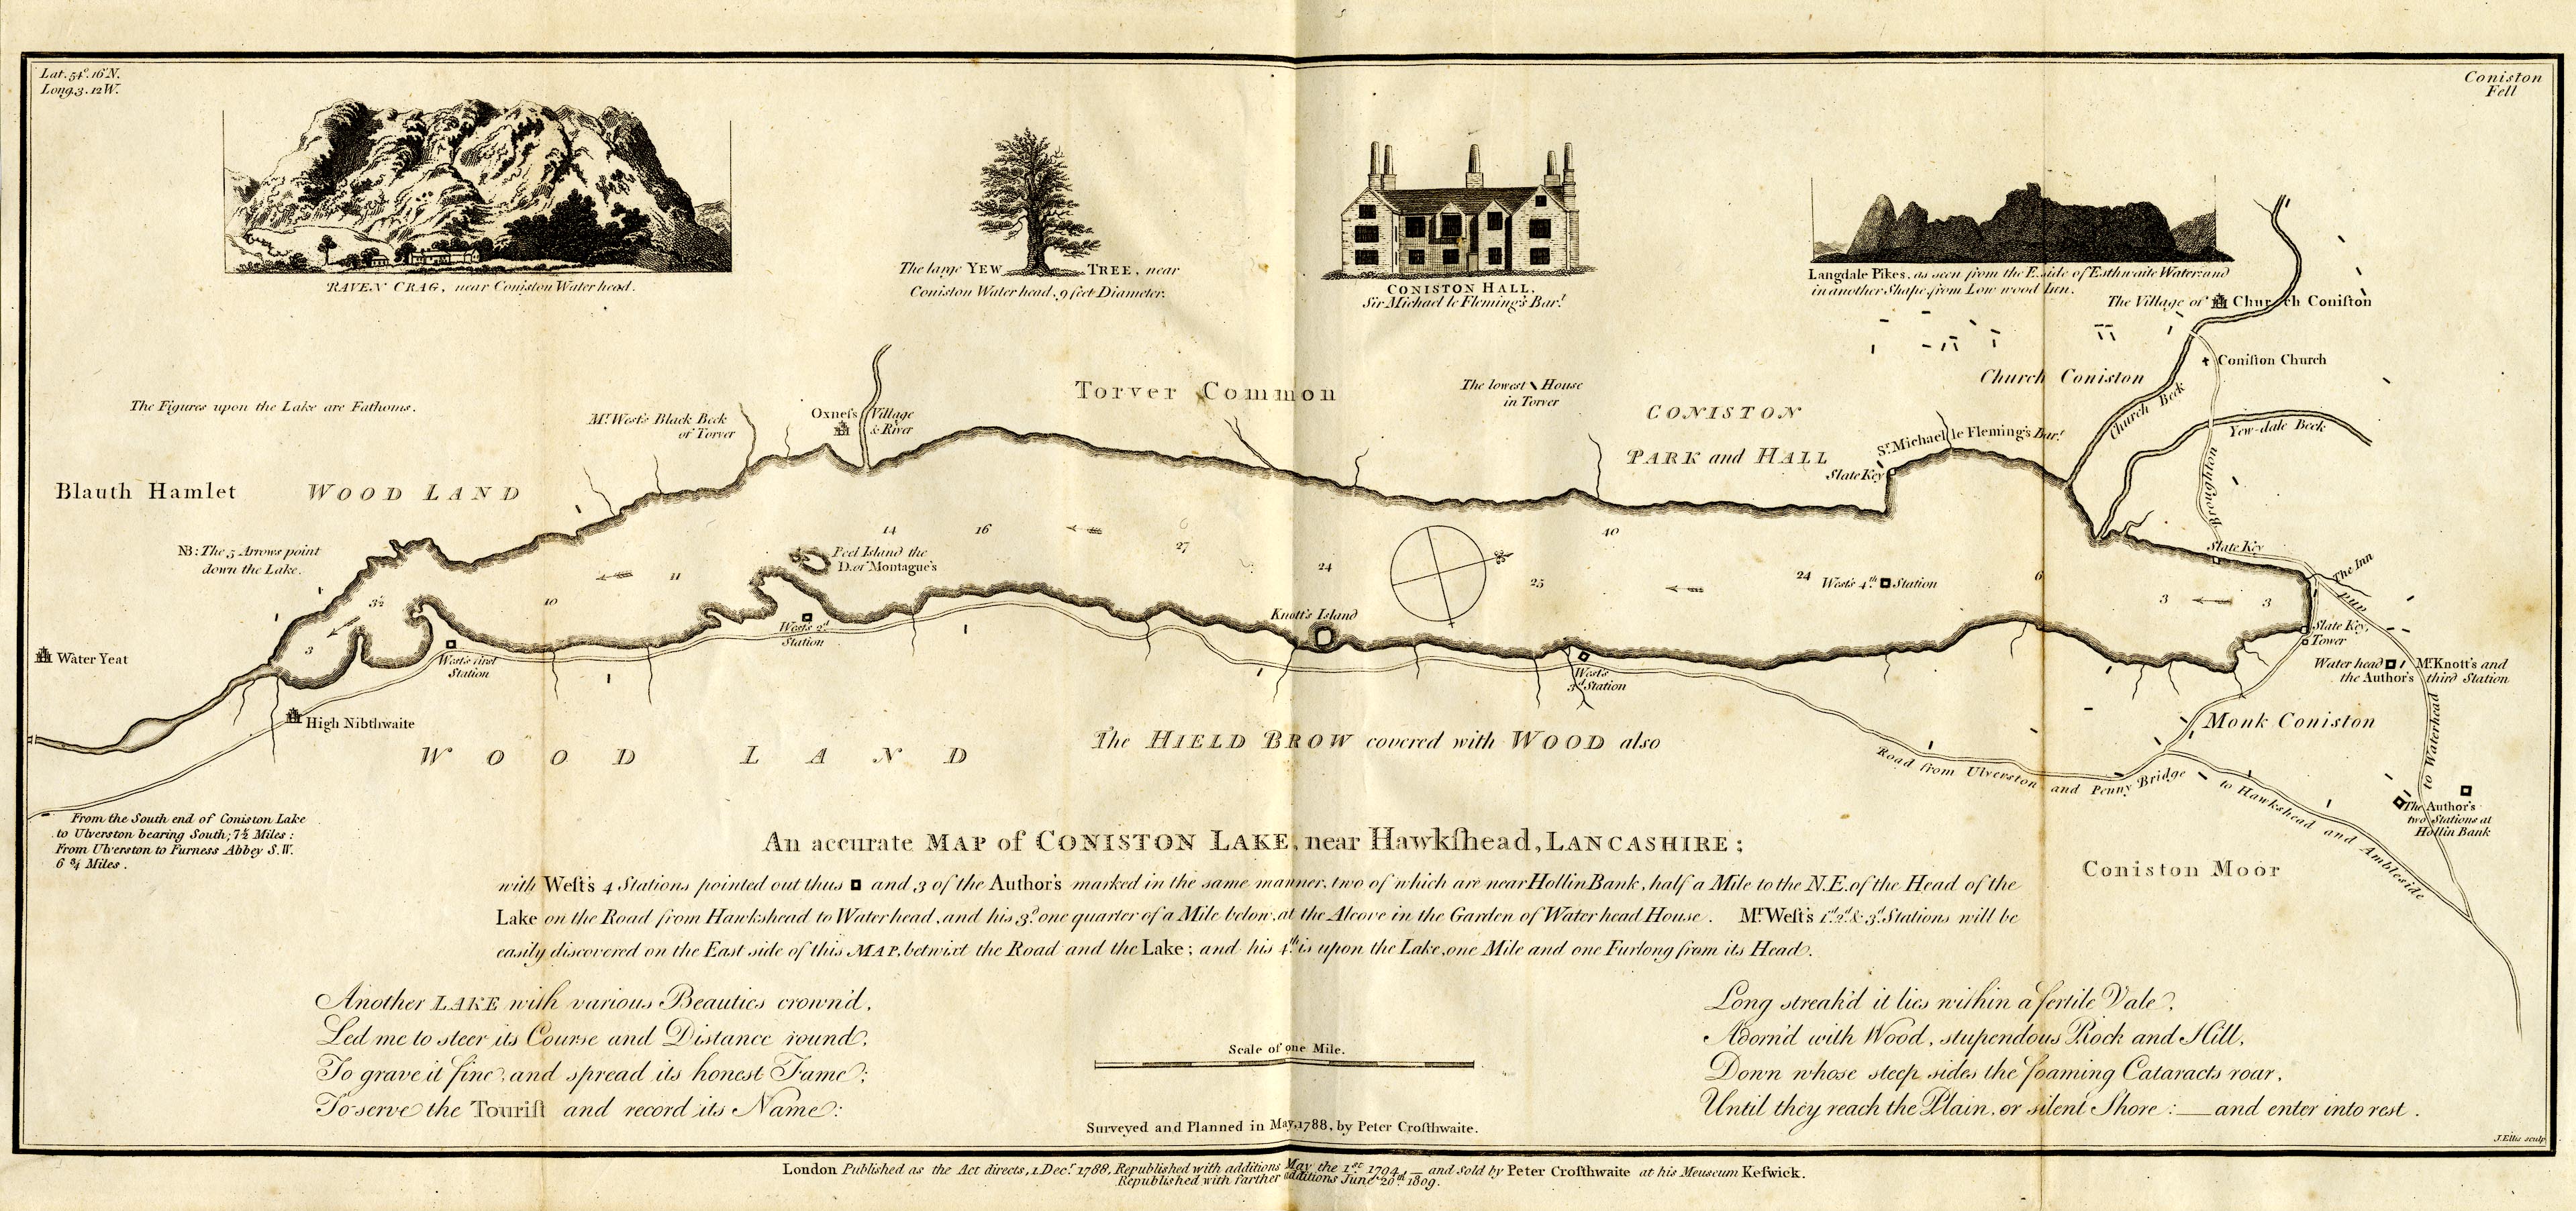 Lat. 54°. 16' N.
Long. 3. 12 W.
Coniston
Fell
RAVEN CRAG, near Coniston Water head.
The large YEW TREE, near
Coniston Water head, 9 feet Diameter.
CONISTON HALL,
Sir Michael le Fleming's Bar.t
Langdale Pikes, as seen from the E. side of Esthwaite Water and
in another Shape from Low wood Inn.
The Village of Church Coniſton
Coniſton Church
Church Coniston
Church Beck
Yew-dale Beck
Broughton
The Figures upon the Lake are Fathoms.
Mr. West's Black Beck
of Torver
Oxneſs Village
& River
Torver Common
The lowest House
in Torver
CONISTON
PARK and HALL
Sr. Michael le Fleming's Bar.t
Slate Key
Blauth Hamlet
WOOD LAND
NB: The 5 Arrows point
down the Lake.
14
16
27
40
Peel Island the
D. of Montague's
11
10
3½
3
24
25
24
West's 4.th Station
6
3
3
Slate Key
The Inn
and
Slate Key,
Tower
Knott's Island
West's 2.d
Station
West's first
Station
West's
3.d Station
Water Yeat
High Nibthwaite
Water head
the Author's
Mr. Knott's and
third Station
Monk Coniston
to Waterhead
WOOD LAND
The HIELD BROW covered with WOOD also
Road from Ulverston and Penny Bridge
to Hawkshead and Ambleside
The Author's
two Stations at
Hollin Bank
Coniston Moor
From the South end of Coniston Lake
to Ulverston bearing South; 7½ Miles:
From Ulverston to Furness Abbey S.W.
6 ¾ Miles.
An accurate MAP of CONISTON LAKE, near Hawkſhead, LANCASHIRE;
with Weſt's 4 Stations pointed out thus and 3 of the Author's marked in the same manner, two of which are near Hollin Bank, half a Mile to the N.E. of the Head of the
Lake on the Road from Hawkshead to Water head, and his 3.d one quarter of a Mile below, at the Alcove in the Garden of Water head House. Mr. Weſt's 1.st 2.d & 3.d Stations will be
easily discovered on the East side of this MAP, betwixt the Road and the Lake; and his 4.th is upon the Lake, one Mile and one Furlong from its Head.
Another LAKE with various Beauties crown'd,
Led me to steer its Course and Distance round,
To grave it fine, and spread its honest Fame;
To serve the Touriſt and record its Name:
Long streak'd it lies within a fertile Vale,
Adorn'd with Wood, stupendous Rock and Hill,
Down whose steep sides the foaming Cataracts roar,
Until they reach the Plain, or silent Shore: — and enter into rest.
Scale of one Mile.
Surveyed and Planned in May, 1788, by Peter Croſthwaite.
J. Ellis sculp
London Published as the Act directs, 1. Dec.r 1788, Republished with additions May the 1.st 1794. — and Sold by Peter Croſthwaite at his Meuseum Keſwick.
Republished with farther additions June 20.th 1809.